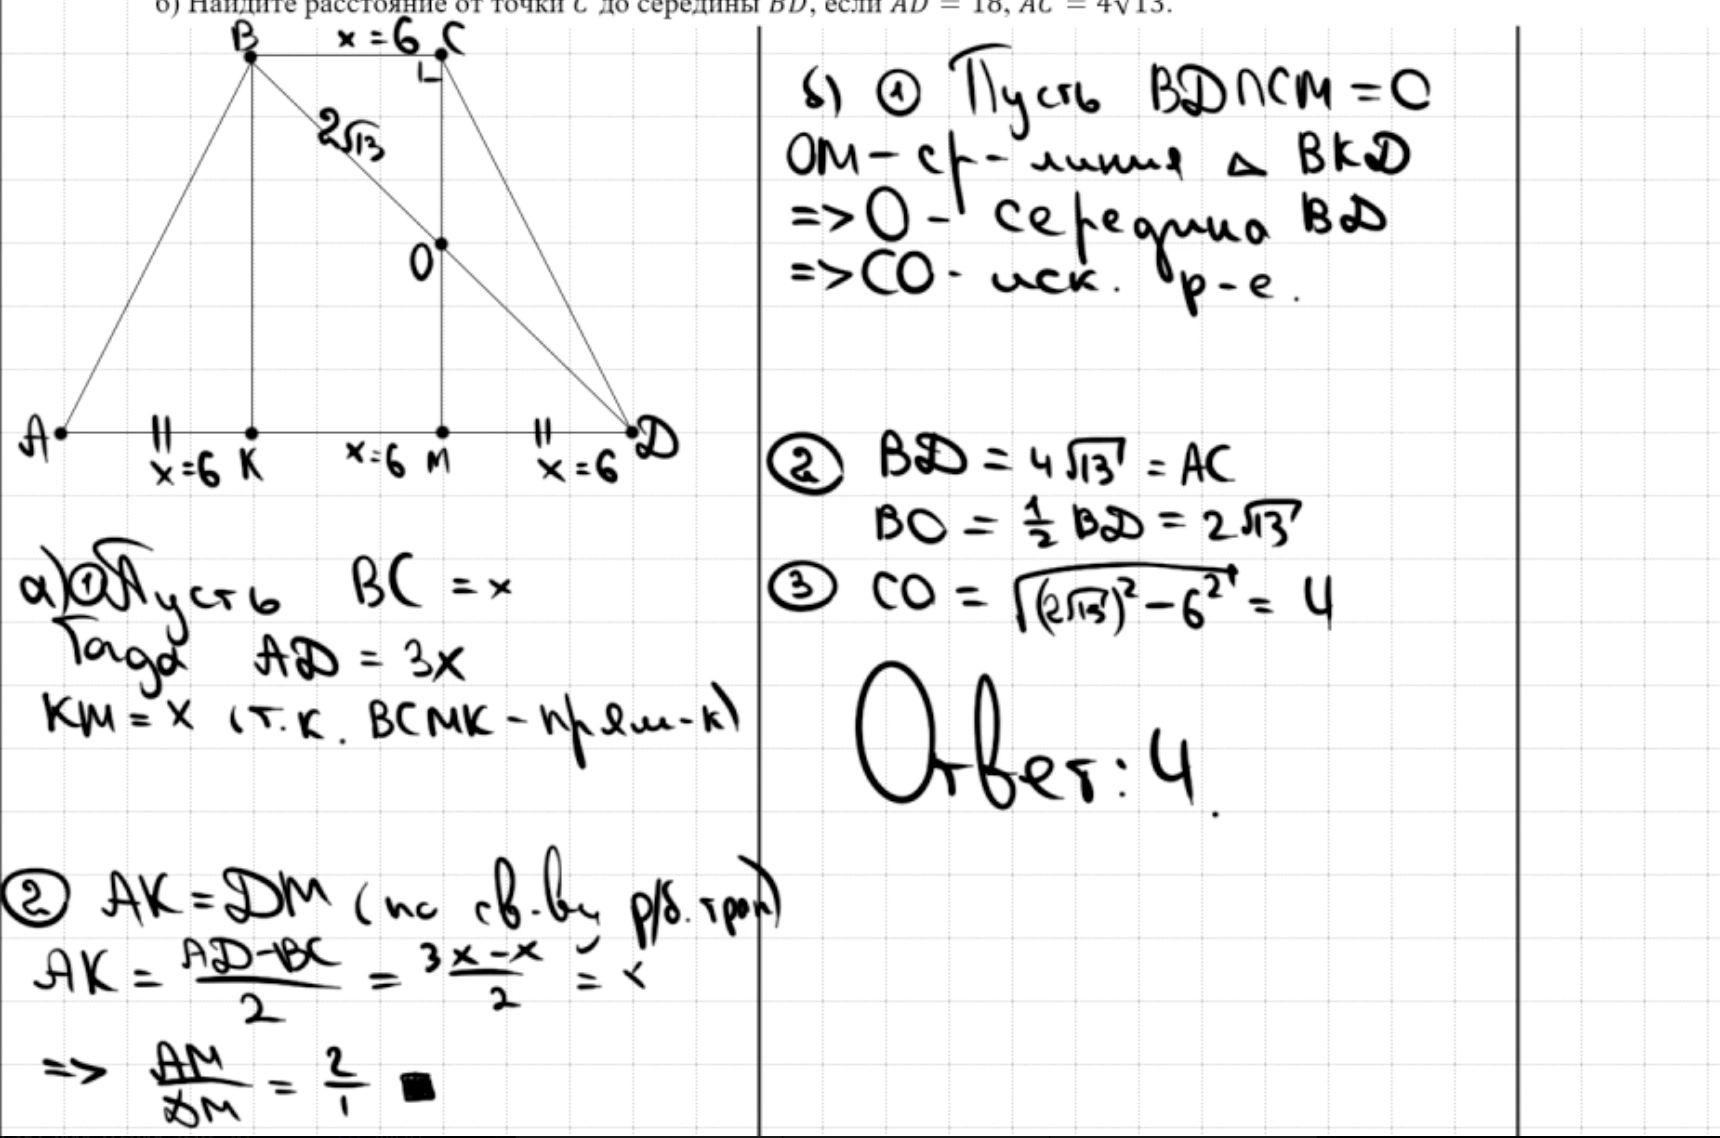 б) Найдите расстояние от точки C до середины BD, если AD = 18, AC = 4√13.
B x = 6 C
2√13
O
A x=6 K x=6 M x=6 D
а) ① Пусть BC = x
Тогда AD = 3x
KM = x (т.к. BCMK - прям-к)
② AK = DM (по св-ву р/б. трап)
AK = (AD-BC)/2 = (3x-x)/2 = x
=> AM/DM = 2/1 ■
б) ① Пусть BD∩CM = O
OM - ср- линия △ BKD
=> O - середина BD
=> CO - иск. р-е.
② BD = 4√13 = AC
BO = 1/2 BD = 2√13
③ CO = √((2√13)² - 6²) = 4
Ответ: 4.